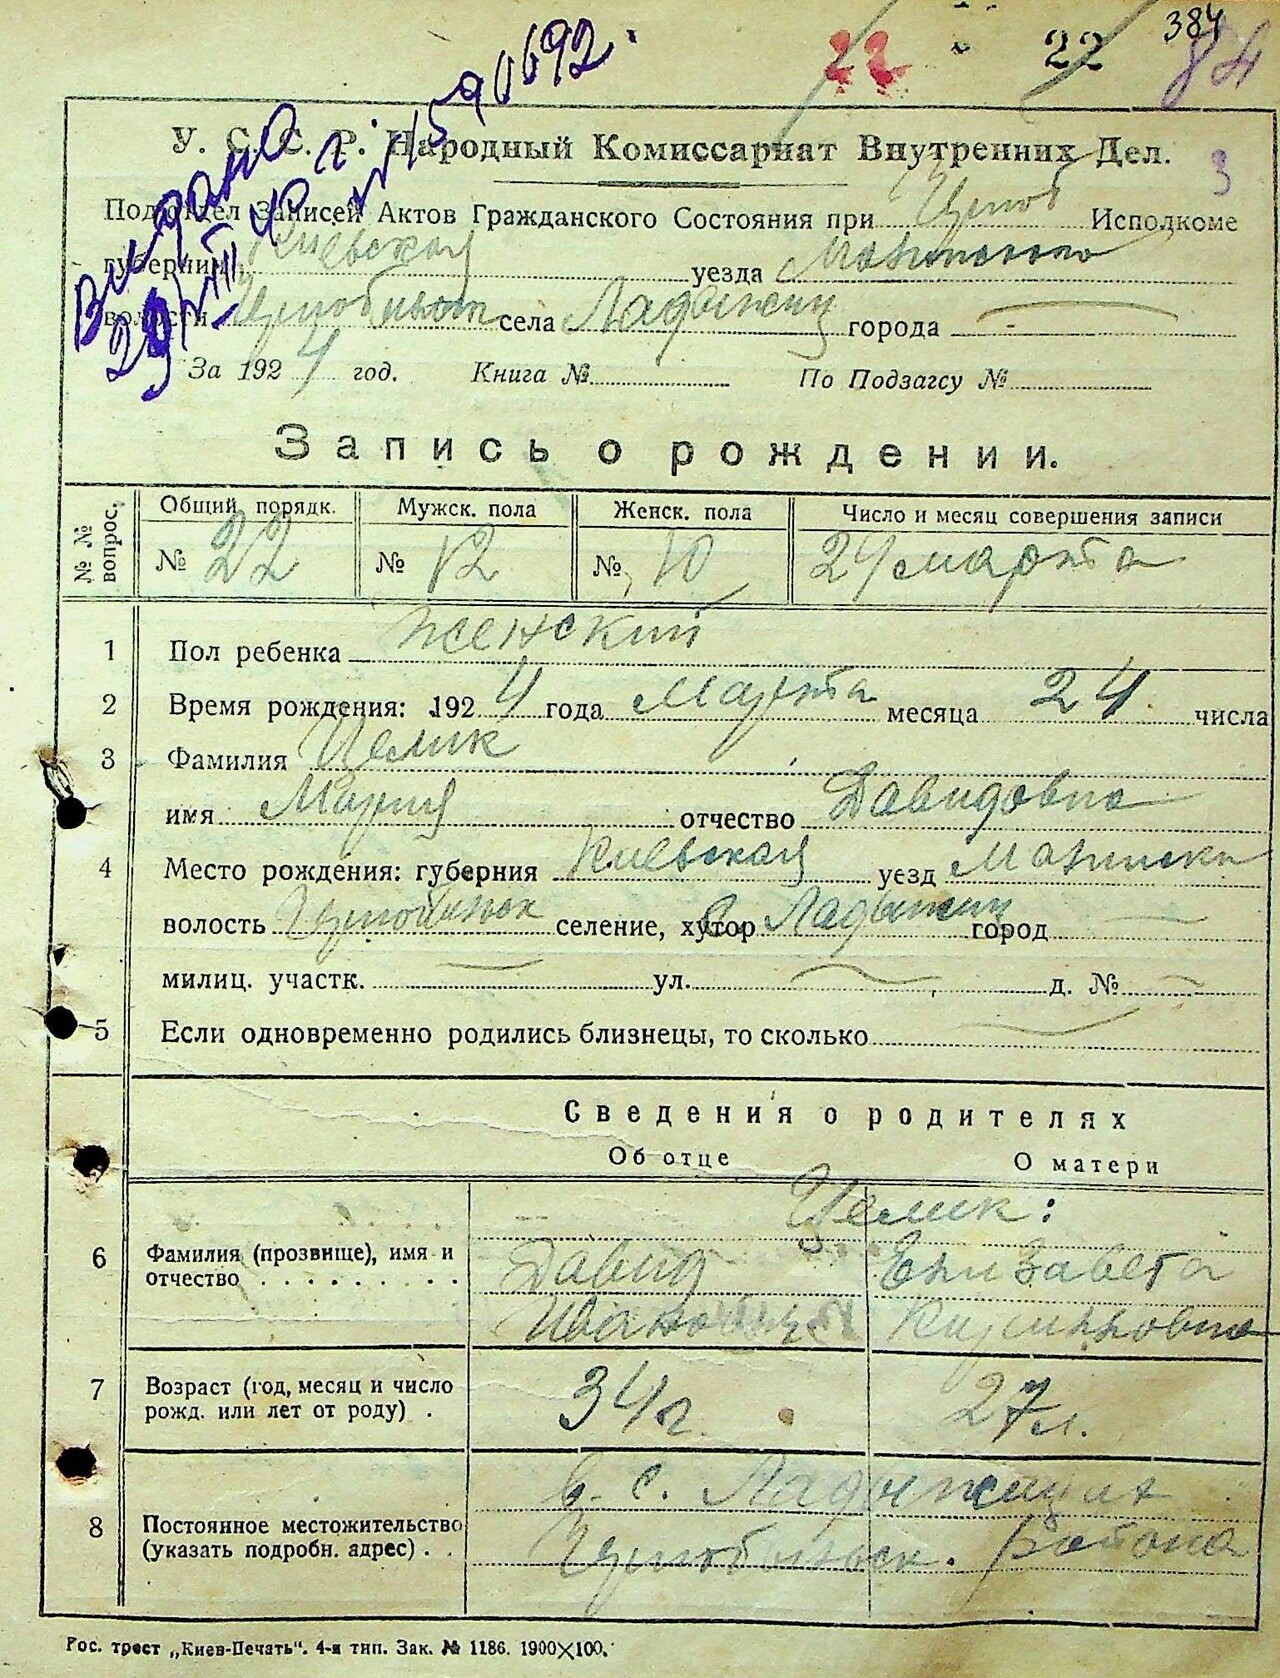 384
22 22 84
Видано
29/VIII 40 г. № 590692.
У. С. С. Р. Народный Комиссариат Внутренних Дел.
3
Подотдел Записей Актов Гражданского Состояния при Исполкоме
губернии Киевская уезда
волости села Ладыжичи города —
За 1924 год. Книга № По Подзагсу №
Запись о рождении.
№ № вопрос. Общий порядк. Мужск. пола Женск. пола Число и месяц совершения записи
№ 22 № 12 № 10 24 марта
1 Пол ребенка женский
2 Время рождения: 1924 года Марта месяца 24 числа
3 Фамилия Целик
имя Мария отчество Давидовна
4 Место рождения: губерния Киевская уезд
волость селение, хутор с. Ладыжичи город —
милиц. участк. — ул. — д. № —
5 Если одновременно родились близнецы, то сколько —
Сведения о родителях
Об отце О матери
Целик:
6 Фамилия (прозвище), имя и Давид Елизавета
отчество Иванович
7 Возраст (год, месяц и число 34 г. 27 л.
рожд. или лет от роду)
8 Постоянное местожительство в с. Ладыжичах
(указать подробн. адрес) Чернобыльск. района
Гос. трест „Киев-Печать“. 4-я тип. Зак. № 1186. 1900×100.